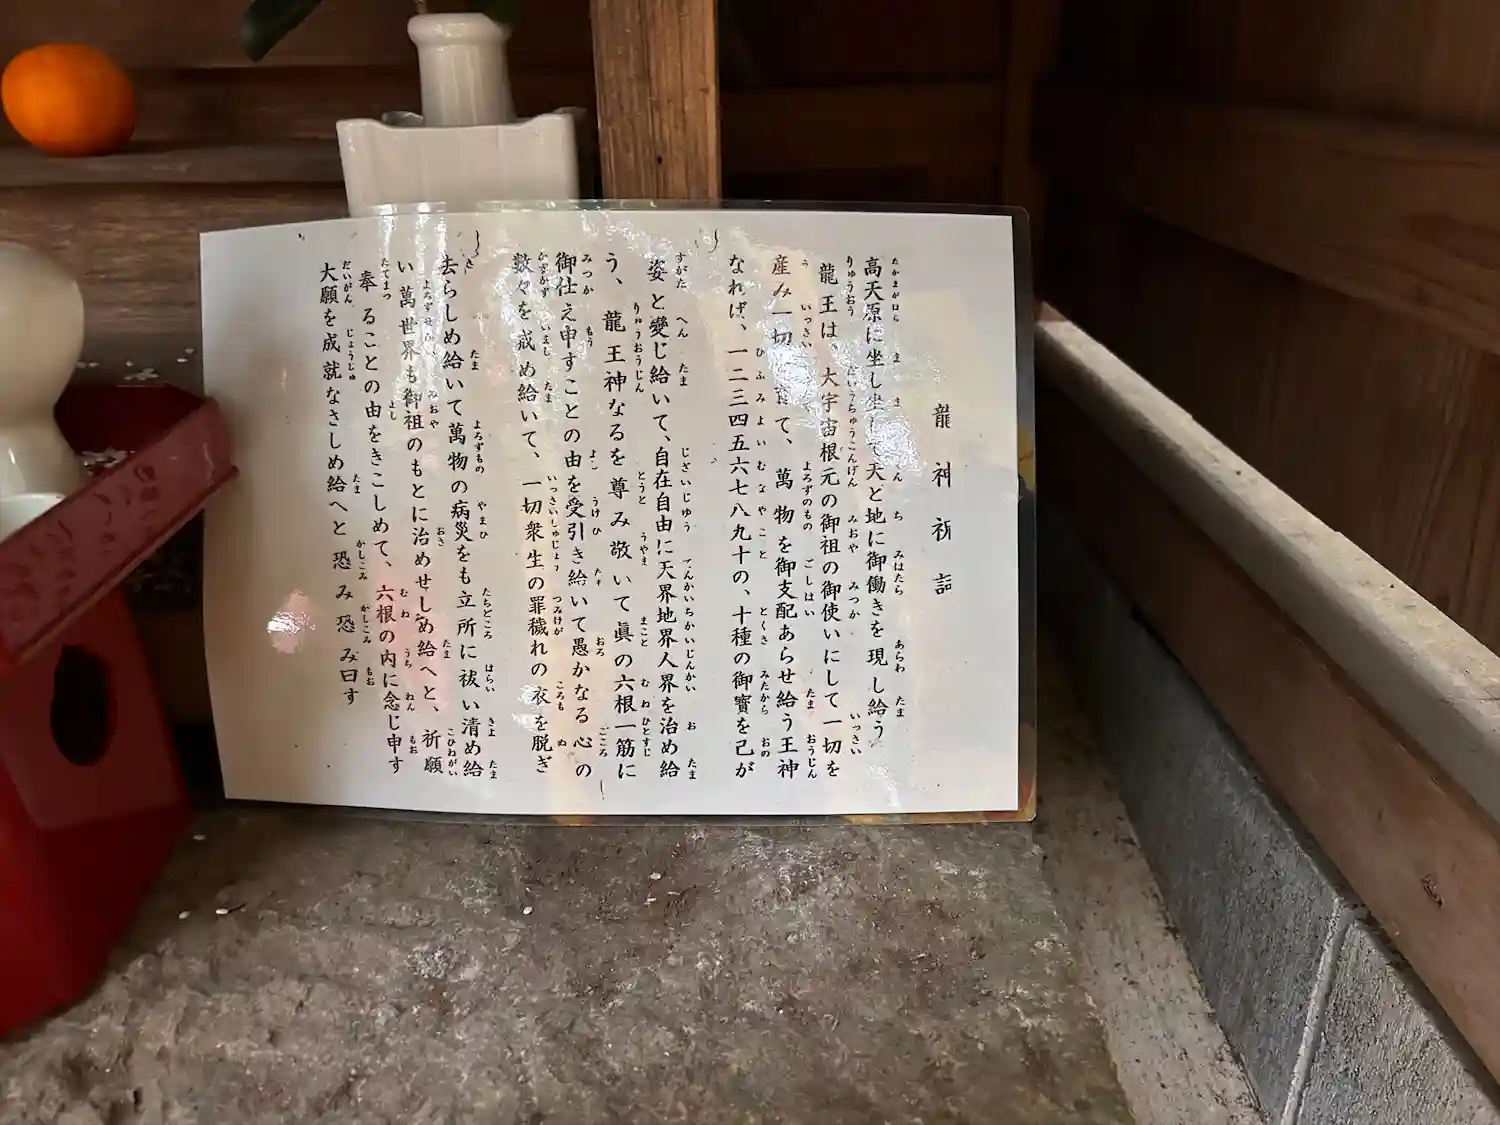 龍神祈詣
高天原に坐し坐して天と地に御働きを現し給う
龍王は、大宇宙根元の御祖の御使いにして一切を
産み一切を育て、萬物を御支配あらせ給う王神
なれば、一二三四五六七八九十の、十種の御寶を己が
姿と變じ給いて、自在自由に天界地界人界を治め給
う、龍王神なるを尊み敬いて眞の六根一筋に
御仕え申すことの由を受引き給いて愚かなる心の
数々を戒め給いて、一切衆生の罪穢れの衣を脱ぎ
去らしめ給いて萬物の病災をも立所に祓い清め給
い萬世界も御祖のもとに治めせしめ給へと、祈願
奉ることの由をきこしめて、六根の内に念じ申す
大願を成就なさしめ給へと恐み恐み曰す